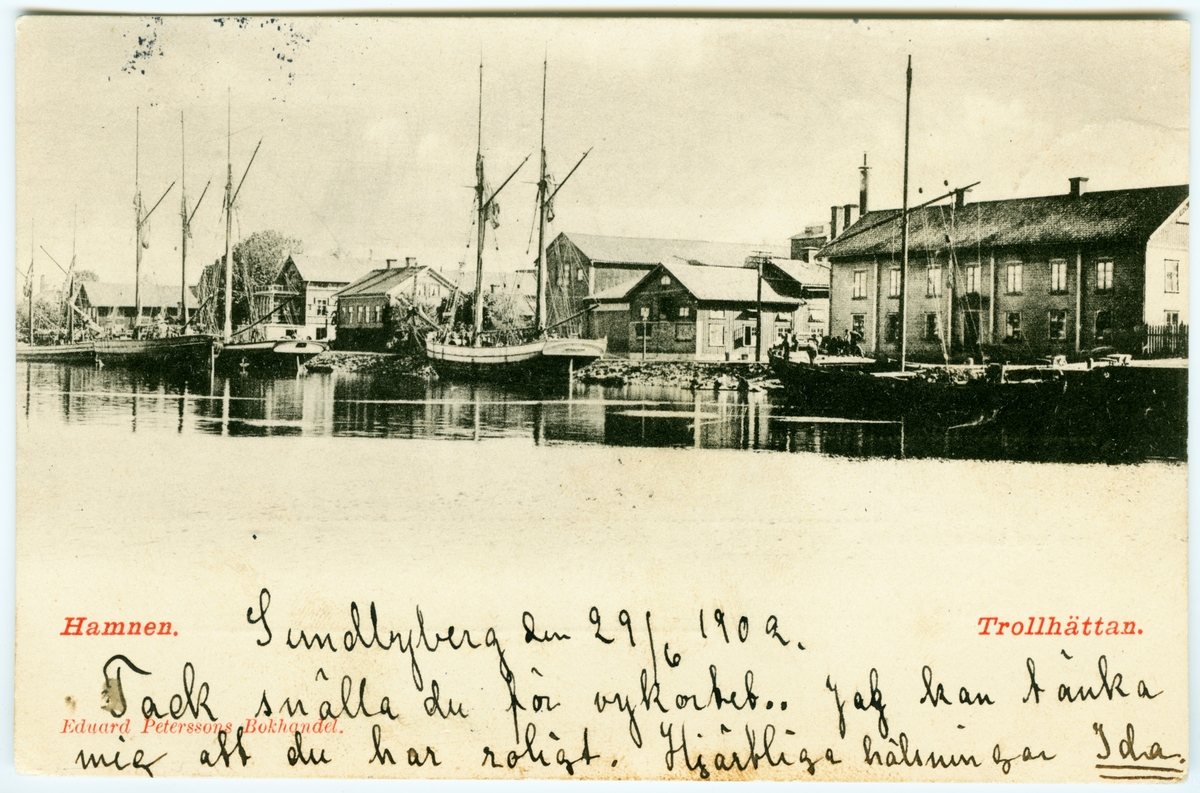 Hamnen.
Sundbyberg den 29/6 1902.
Trollhättan.
Tack snälla du för vykortet.. Jag kan tänka
Eduard Peterssons Bokhandel.
mig att du har roligt. Hjärtliga hälsningar Ida.